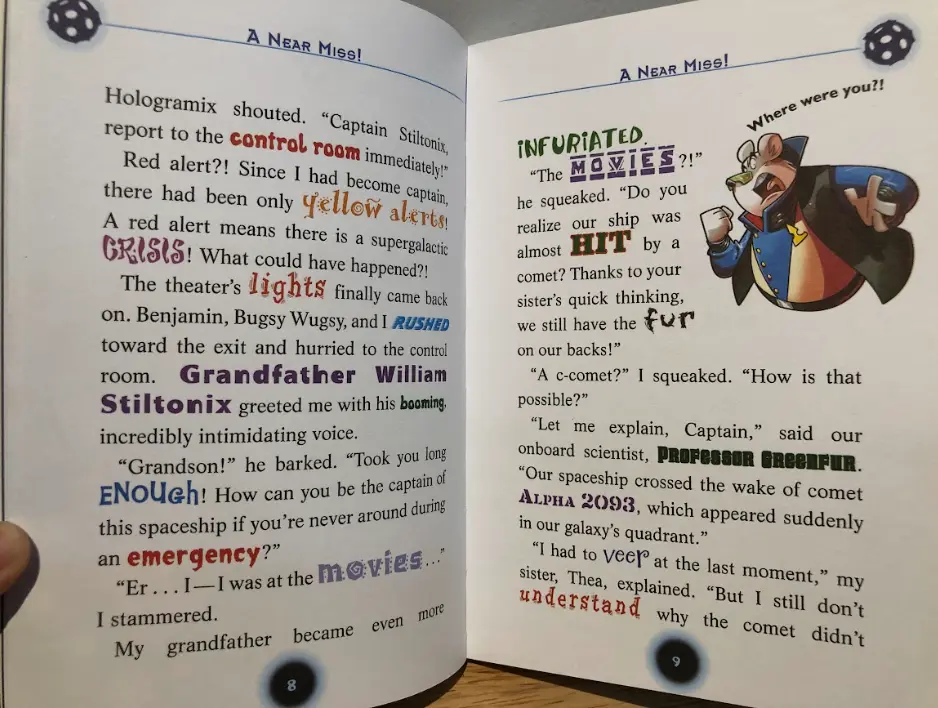 A NEAR MISS!
Hologramix shouted. “Captain Stiltonix,
report to the control room immediately!”
Red alert?! Since I had become captain,
there had been only yellow alerts!
A red alert means there is a supergalactic
CRISIS! What could have happened?!
The theater’s lights finally came back
on. Benjamin, Bugsy Wugsy, and I RUSHED
toward the exit and hurried to the control
room. Grandfather William
Stiltonix greeted me with his booming,
incredibly intimidating voice.
“Grandson!” he barked. “Took you long
ENOUGH! How can you be the captain of
this spaceship if you’re never around during
an emergency?”
“Er . . . I—I was at the movies . . .”
I stammered.
My grandfather became even more
8
A NEAR MISS!
Where were you?!
INFURIATED.
“The MOVIES?!”
he squeaked. “Do you
realize our ship was
almost HIT by a
comet? Thanks to your
sister’s quick thinking,
we still have the fur
on our backs!”
“A c-comet?” I squeaked. “How is that
possible?”
“Let me explain, Captain,” said our
onboard scientist, PROFESSOR GREENFUR.
“Our spaceship crossed the wake of comet
ALPHA 2093, which appeared suddenly
in our galaxy’s quadrant.”
“I had to veer at the last moment,” my
sister, Thea, explained. “But I still don’t
understand why the comet didn’t
9